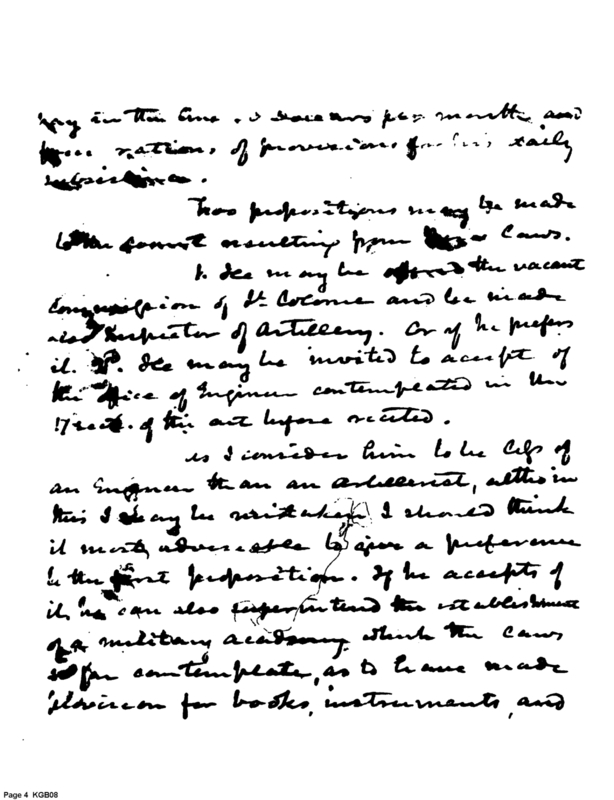 pay in the line . dollars per month and
four rations of provisions for his daily
subsistence.
Two propositions may be made
to the consult resulting from Laws.
1. He may be offered the vacant
commission of Lt Colonel and be made
also Inspector of Artillery. Or if he prefers
it. 2. He may be invited to accept of
the office of Engineer contemplated in the
17 sect. of the act before recited.
as I consider him to be less of
an Engineer than an artillerist, altho in
this I may be mistaken I should think
it most adviseable to give a preference
to the first proposition. If he accepts of
it, he can also superintend the establishment
of a military academy which the Laws
so far contemplate, as to have made
provision for books, instruments, and
Page 4 KGB08